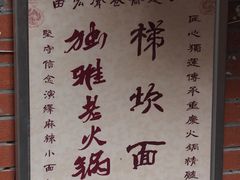 匠心獨運傳承重慶火鍋精髓
梯坎面
独雅老火锅
堅守信念演繹麻辣小面